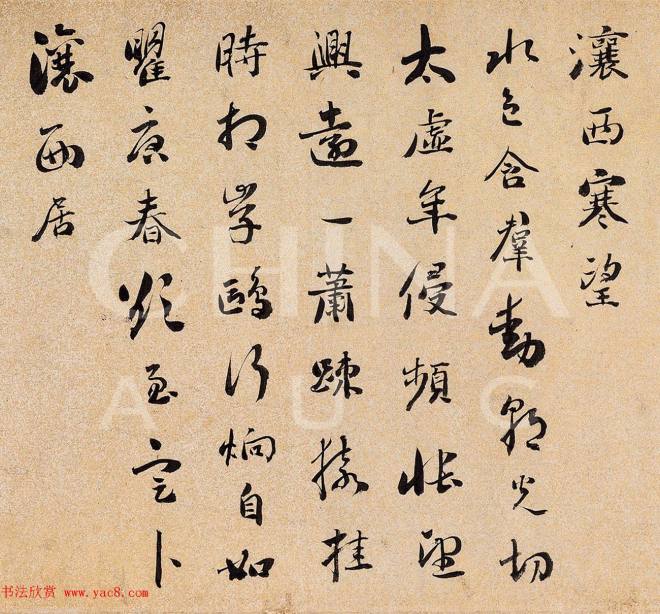 瀼西寒望
水色含羣動朝光切
太虛年侵頻悵望
興遠一蕭疎猿挂
時相學鷗行炯自如
瞿唐春欲至定卜
瀼西居
CHINA
书法欣赏 www.yac8.com